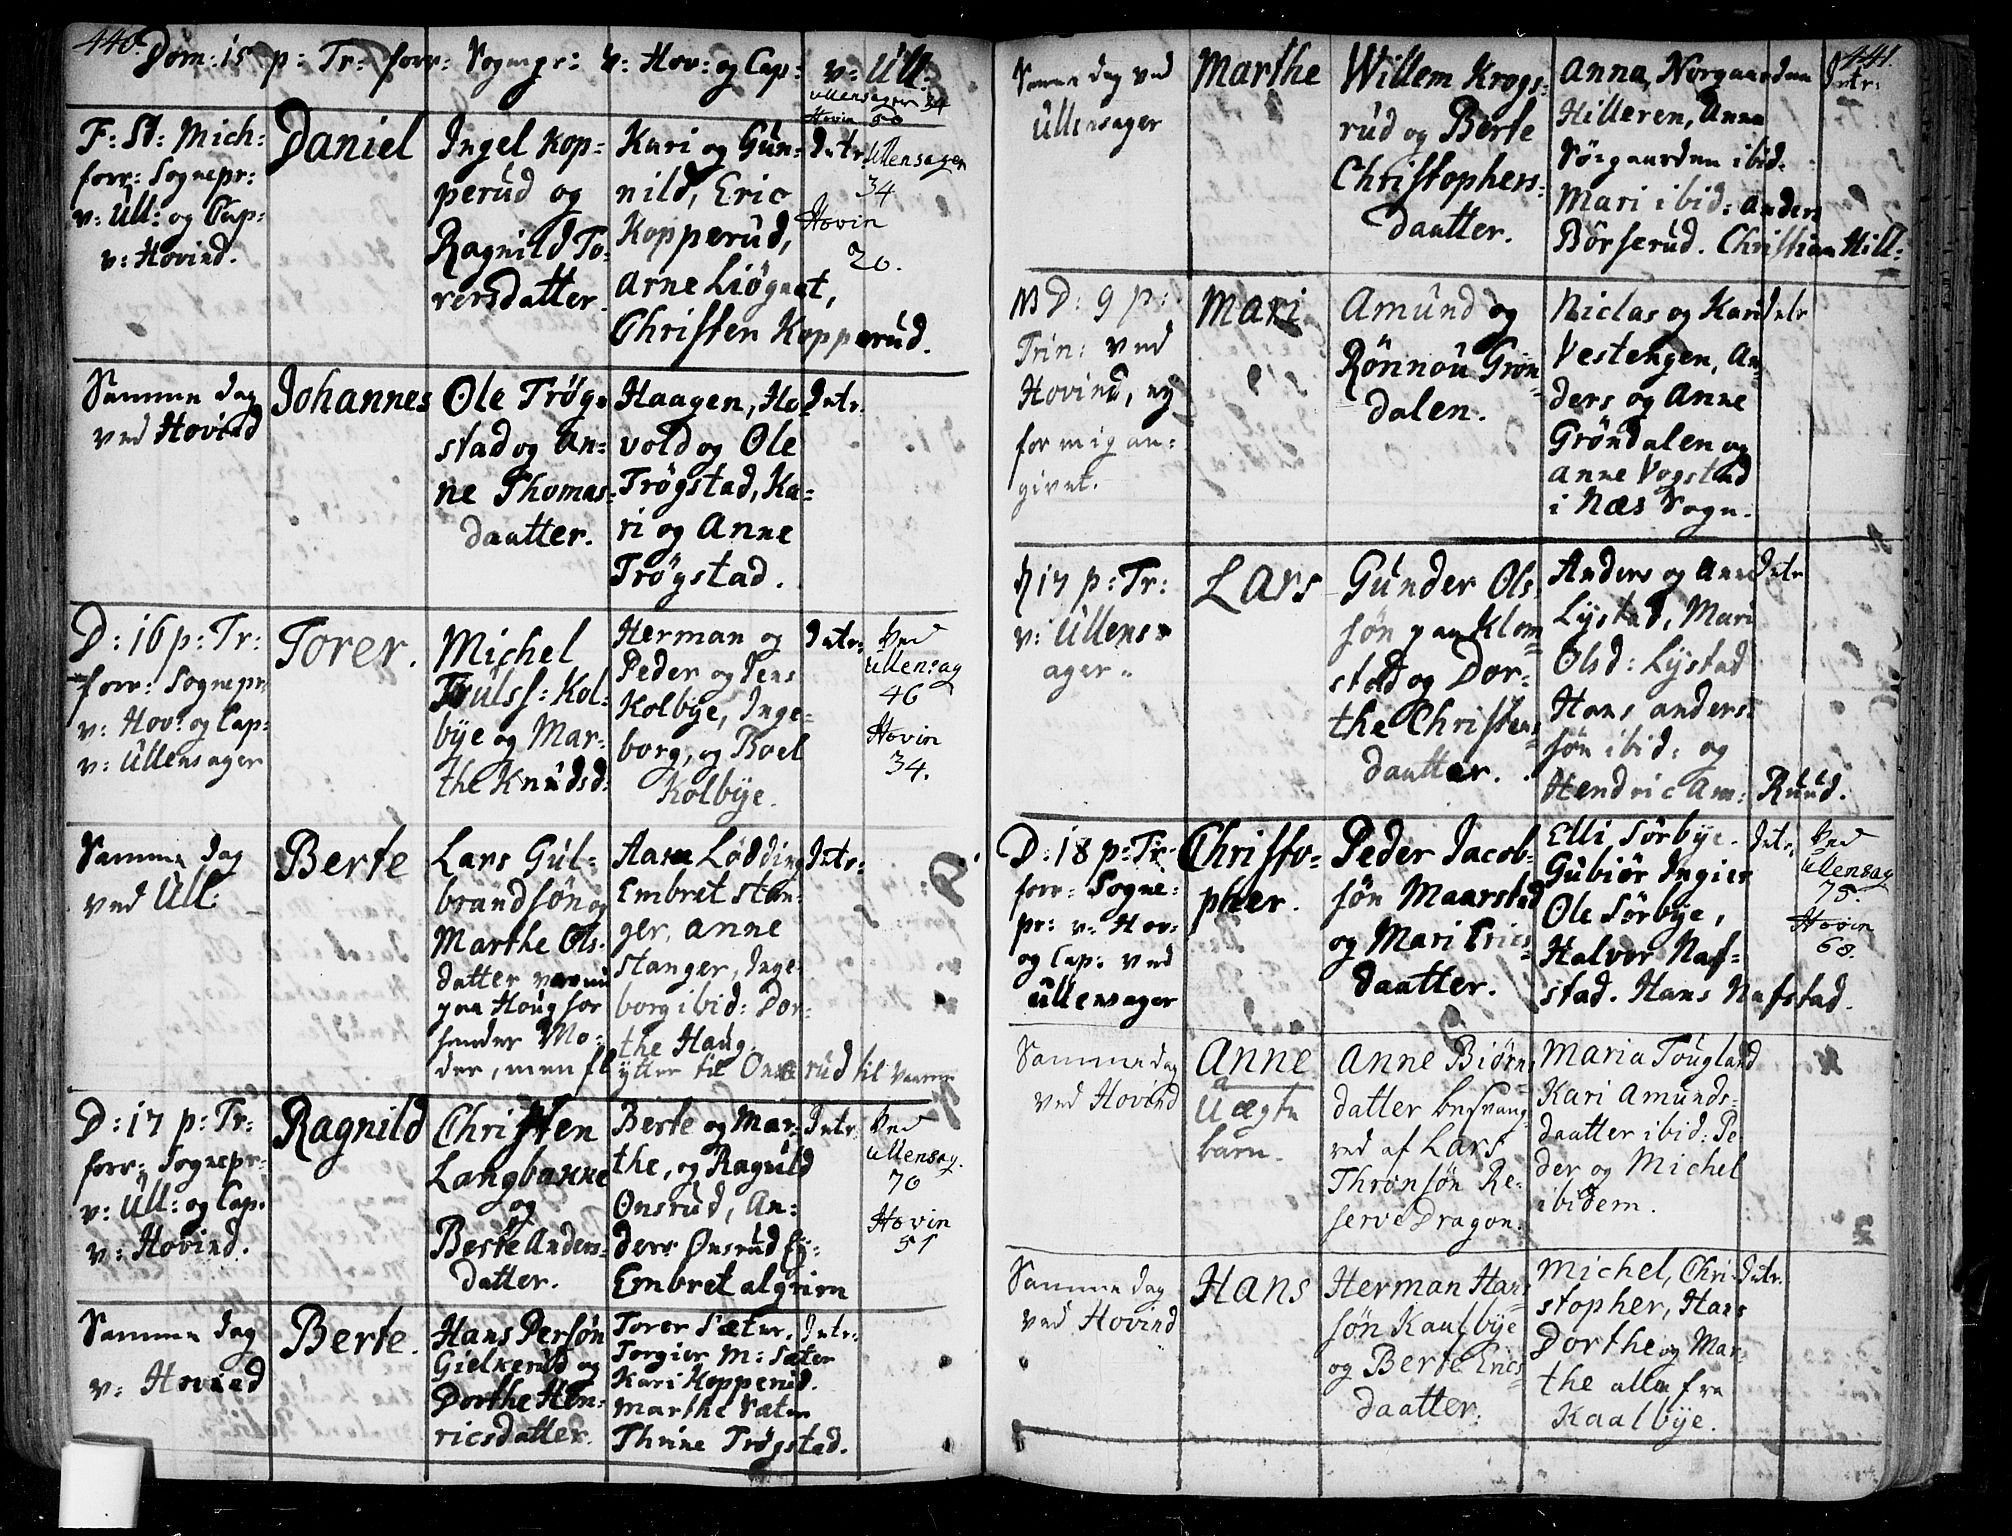 440.
Dom: 15 p: Tr: forr: Sognepr: v: Hov: og Cap: v: Ull.
Ullensager 34
Hovin 50
F: St: Mich:
forr: Sognepr:
v: Ull: og Cap:
v: Hovind.
Daniel
Ingel Kop-
perud og
Ragnild To-
rersdatter.
Kari og Gun-
nild, Eric
Kopperud,
Arne Liøgnet,
Christen Kopperud.
Intr.
Ullensager
34
Hovin
20.
Samme dag
ved Hovind
Johannes
Ole Trøg-
stad og An-
ne Thomas-
daatter.
Haagen, Ho
vold og Ole
Trøgstad, Ka-
ri og Anne
Trøgstad.
Intr.
D: 16 p: Tr:
forr: Sognepr
v: Hov: og Cap:
v: Ullensager
Torer.
Michel
Trulss: Kol-
bye og Mar-
the Knudsd:
Herman og
Peder og Jens
Kolbye, Inge-
borg, og Boel
Kolbye.
Intr:
Ved
Ullensag
46
Hovin
34.
Samme dag
ved Ull:
Berte
Lars Gul-
brandsøn og
Marthe Ols-
datter
paa Houg for
hendes Mo-
der, men flytter til Onsrud til Vaaren
Aase Lødding
Embret Stan-
ger, Anne
Stanger, Inge-
borg ibid: Dor-
the Haug.
Intr:
D: 17 p: Tr:
forr: Sognepr.
v: Ull: og Cap.
v: Hovind.
Ragnild
Christen
Langbakke
og
Berte Anders-
datter.
Berte og Mar-
the, og Ragnild
Onsrud, An-
ders Onsrud
Embret Algrim
Intr:
Ved
Ullensag.
70
Hovin
51
Samme dag
v: Hovind
Berte.
Hans Persøn
Gielkerud og
Dorthe Hen-
ricsdatter.
Torer Sæter.
Torgier M: Sæter
Kari Kopperud.
Marthe Sæter
Thrine Trøgstad.
Intr:
441.
Samme dag ved
Ullensager
Marthe
Willem Krogs-
rud og Berte
Christophers-
daatter.
Anna Norgaarden
Hilleren, Anna
Sørgaarden ibid.
Mari ibid: Anders
Børserud. Christian Hill:
Intr:
NB D: 9 p:
Trin: ved
Hovind, ey
for mig an-
givet.
Mari
Amund og
Rønnou Grøn-
dalen.
Niclas og Kari
Vestengen, An-
ders og Anne
Grøndalen og
Anne Vogstad
i Næs Sogn.
Intr
17 p: Tr:
v: Ullens-
ager
Lars
Gunder Ols
søn paa Klom
stad og Dor-
the Christens-
daatter.
Anders og Anne
Lystad, Mari
Olsd: Lystad
Hans Anders
søn ibid: og
Hendric Am: Ruud.
Intr
D: 18 p: Tr
forr: Sogne-
pr: v: Hov:
og Cap: ved
Ullensager
Christo-
pher.
Peder Jacob-
søn Maarstad
og Mari Erics-
daatter.
Elli Sørbye.
Gubiør Ingier
Ole Sørbye,
Halvor Naf-
stad. Hans Nafstad.
Intr.
Ved
Ullensag
75.
Hovin
68.
Samme dag
ved Hovind
Anne
Uægte
barn.
Anne Biørns
datter besvang
red af Lars
Thronsøn Re-
serve Dragon.
Maria Tougland
Kari Amunds-
daatter ibid: Pe-
der og Michel
ibidem.
Samme dag
ved Hovind
Hans
Herman Hans
søn Kaulbye
og Berte Erics
daatter.
Michel, Chri-
stopher, Hans
Dorthe og Mar-
the alle fra
Kaalbye.
Intr.